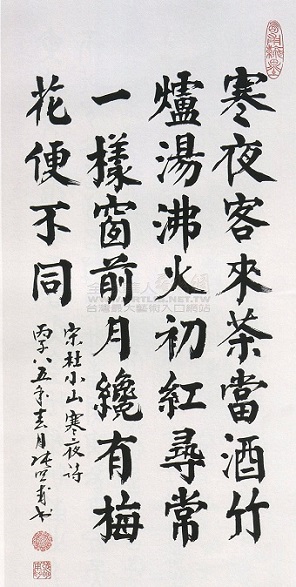 寒夜客來茶當酒竹
爐湯沸火初紅尋常
一樣窗前月纔有梅
花便不同
宋杜小山寒夜詩
丙子八五年
台灣最大藝術入口網站